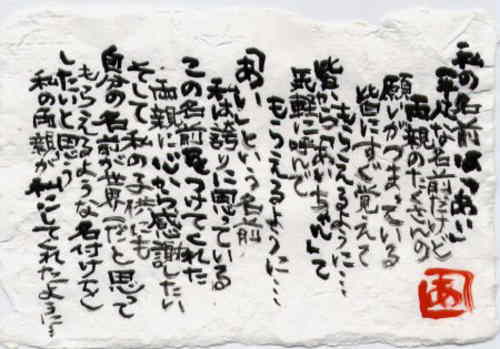 私の名前は「あい」
平凡な名前だけど
両親のたくさんの
願いがつまっている
皆にすぐ覚えて
もらえるように…
皆から「あいちゃん」って
気軽に呼んで
もらえるように…
「あい」という名前
私は誇りに思っている
この名前をつけてくれた
両親に心から感謝したい
そして私の子供にも
自分の名前が世界一だと思って
もらえるような名付けを
したいと思う
私の両親が私にしてくれたように…
あ